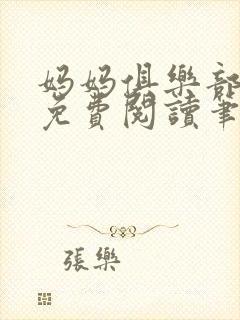 媽媽俱樂部
免費閱讀筆
張樂